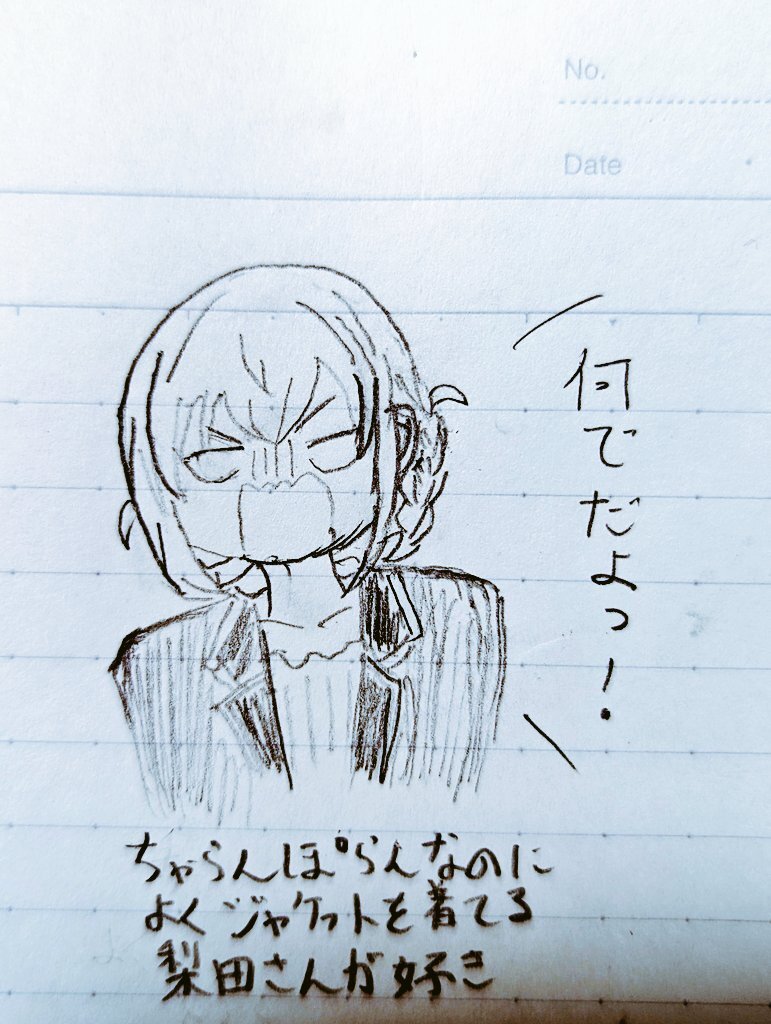 No.
Date
何でだよっ!
ちゃらんぽらんなのに
よくジャケットを着てる
梨田さんが好き